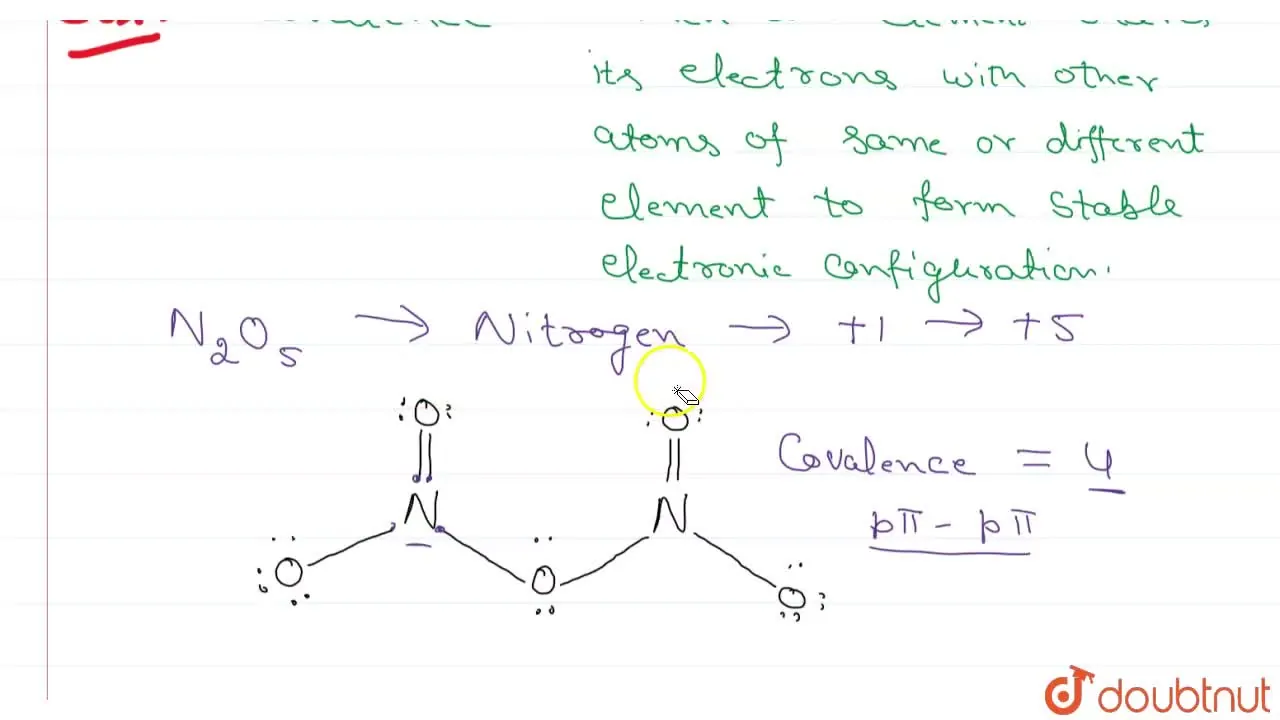 its electrons with other
atoms of same or different
element to form stable
electronic configuration.
N2O5 → Nitrogen → +1 → +5
:O: :O:
Covalence = 4
N N
pπ - pπ
O O O
doubtnut